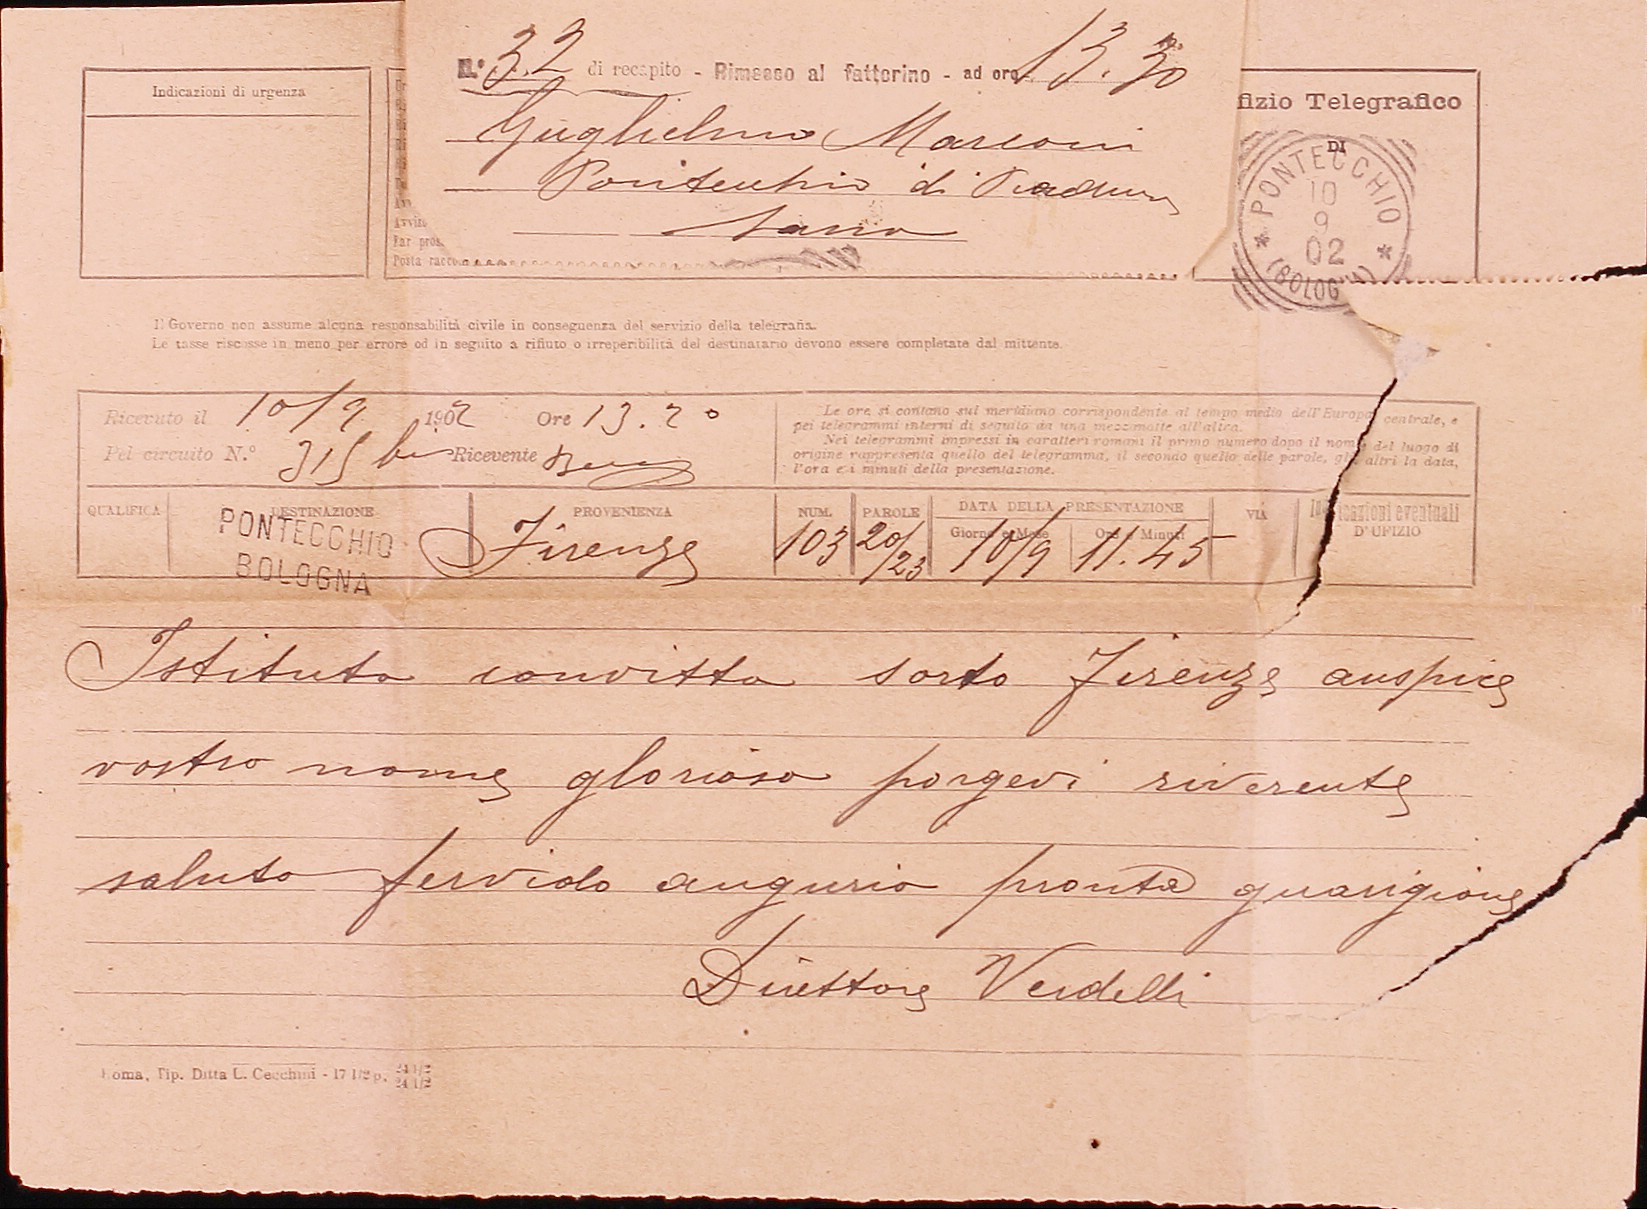 N.° 32 di recapito - Rimesso al fattorino - ad ore 13.30
Guglielmo Marconi
Pontecchio di
Sasso
Indicazioni di urgenza
fizio Telegrafico
DI
PONTECCHIO
10
9
02
(BOLOGNA)
Far pros
Posta racco
Il Governo non assume alcuna responsabilità civile in conseguenza del servizio della telegrafia.
Le tasse riscosse in meno per errore od in seguito a rifiuto o irreperibilità del destinatario devono essere completate dal mittente.
Ricevuto il 10/9 1902 Ore 13.20
Pel circuito N.° 315 bis Ricevente
Le ore si contano sul meridiano corrispondente al tempo medio dell'Europa centrale, e
pei telegrammi interni di seguito da una mezzanotte all'altra.
Nei telegrammi impressi in caratteri romani il primo numero dopo il nome del luogo di
origine rappresenta quello del telegramma, il secondo quello delle parole, gli altri la data,
l'ora e i minuti della presentazione.
QUALIFICA DESTINAZIONE PROVENIENZA NUM. PAROLE DATA DELLA PRESENTAZIONE VIA Indicazioni eventuali
Giorno e Mese Ore e Minuti D'UFIZIO
PONTECCHIO
BOLOGNA
Firenze 103 20/23 10/9 11.45
Istituto convitto sorto Firenze auspice
vostro nome glorioso porgevi riverente
saluto fervido augurio pronta guarigione
Direttore Verdelli
Roma, Tip. Ditta L. Cecchini - 17 1/2 p. 24 1/2
24 1/2